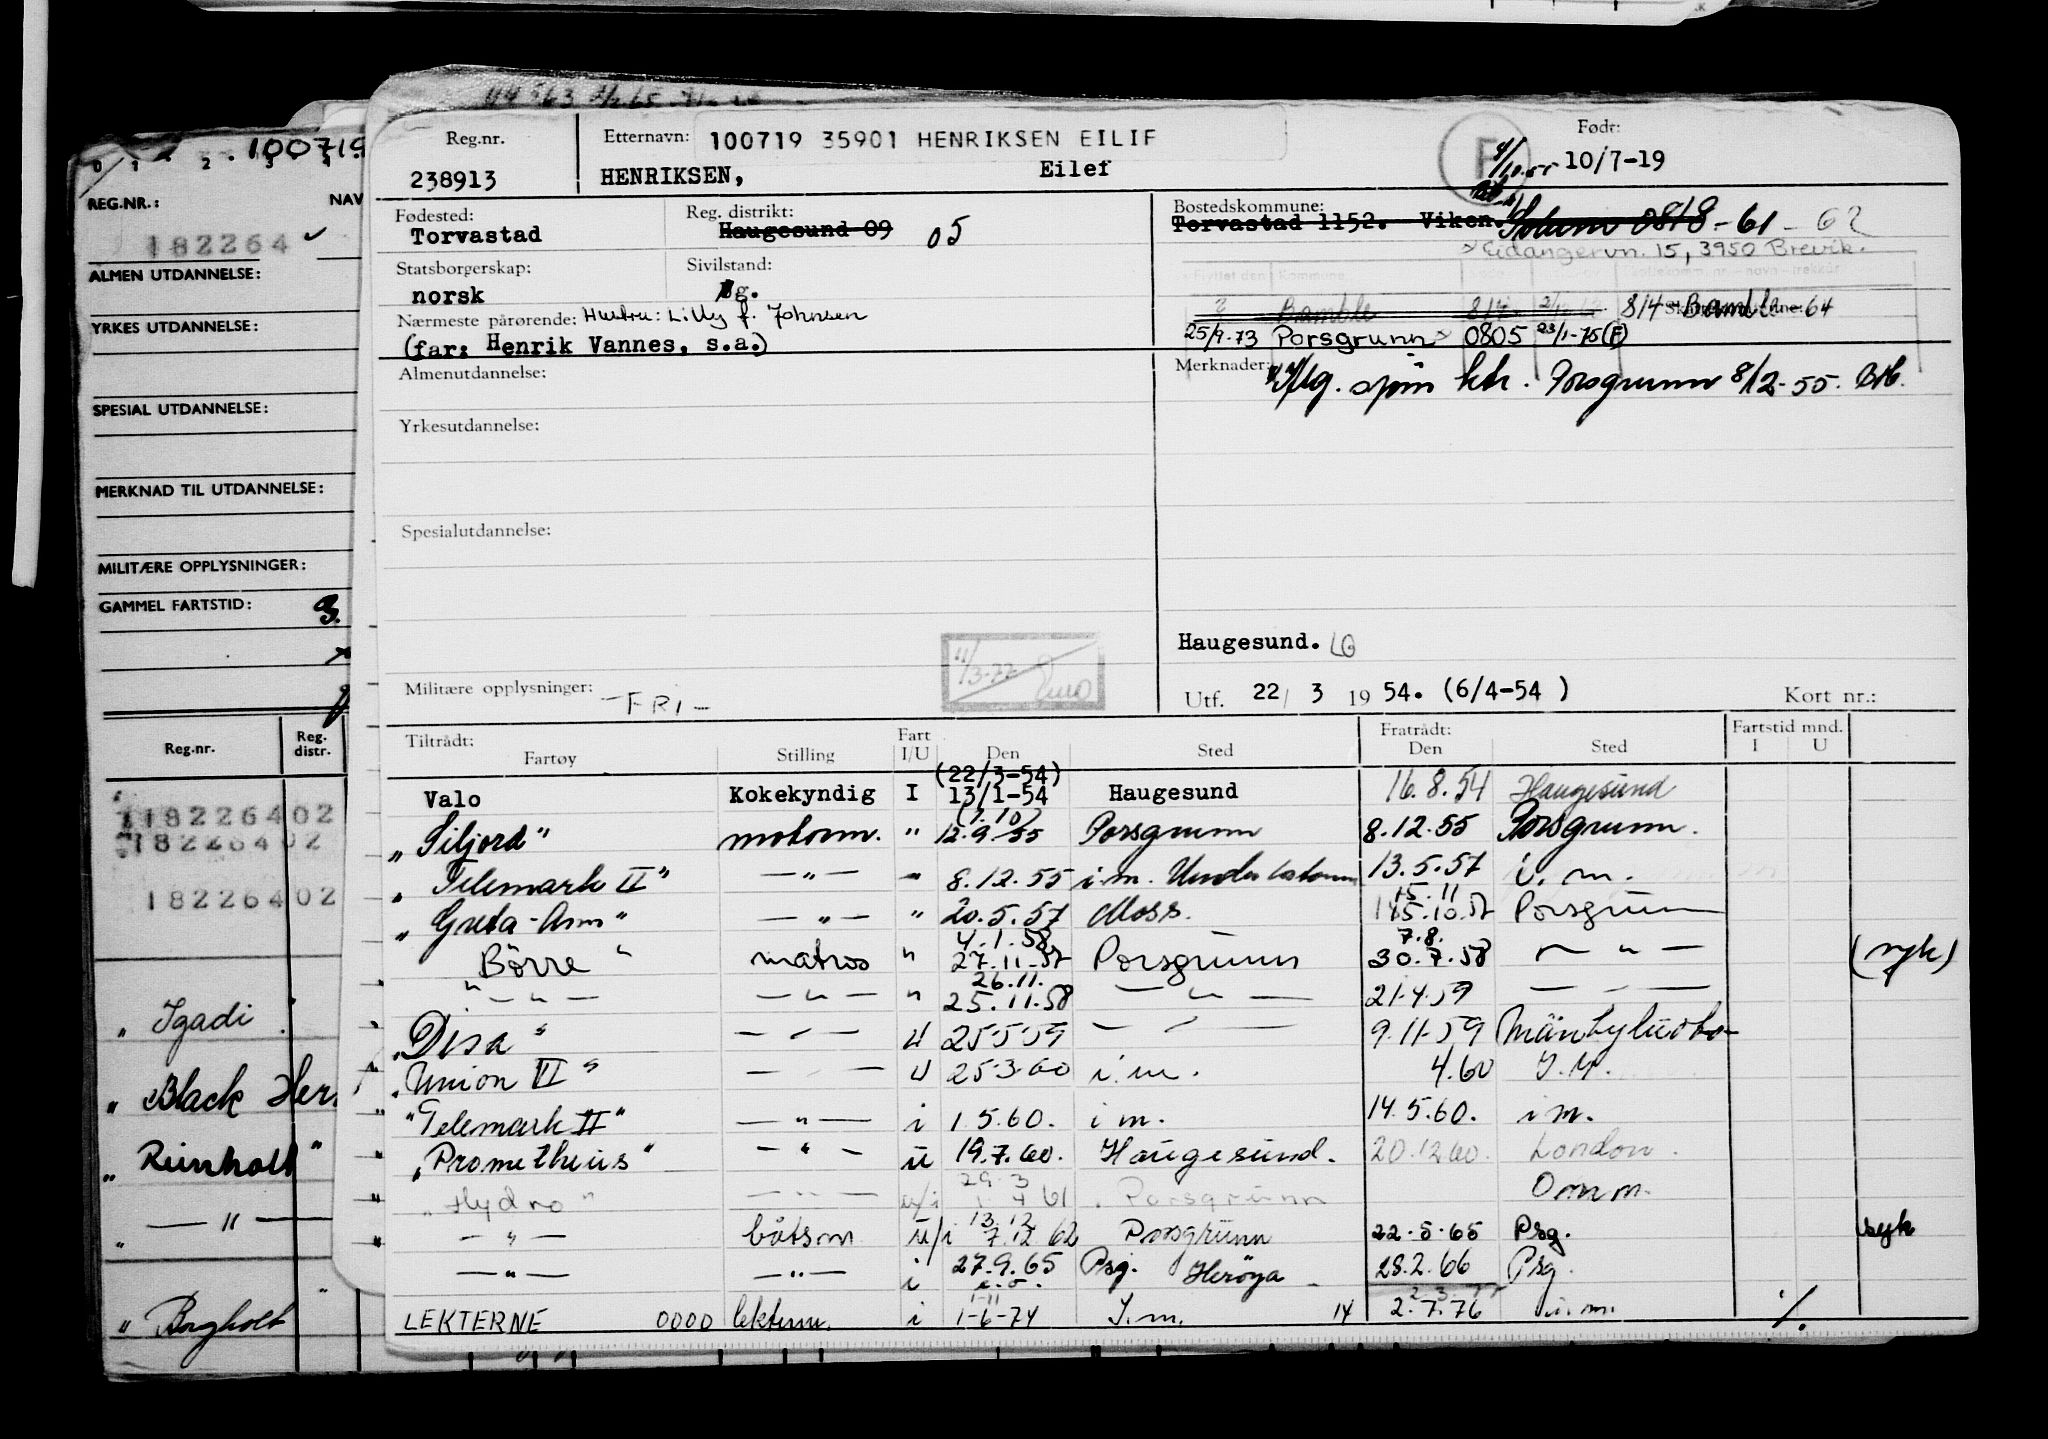 100719
REG.NR.:
NAV
182264 ✓
ALMEN UTDANNELSE:
YRKES UTDANNELSE:
SPESIAL UTDANNELSE:
MERKNAD TIL UTDANNELSE:
MILITÆRE OPPLYSNINGER:
GAMMEL FARTSTID:
Reg.nr. Reg. distr.
18226402
18226402
18226402
„ Igadi
„ Black Her
„ Reinholt "
„ — " —
„ Borgholt "
Reg.nr. Etternavn: 100719 35901 HENRIKSEN EILIF F Født:
238913 HENRIKSEN, Eilef 10/7-19
Fødested: Reg. distrikt: Bostedskommune:
Torvastad Haugesund 09 05 Torvastad 1152. Viken. Solum 0818 - 61 - 62
Eidangervn. 15, 3950 Brevik.
Statsborgerskap: Sivilstand:
norsk g.
Bamble 814 814 Bamble 64
Nærmeste pårørende: Hustru: Lilly f. Johnsen
25/9-73 Porsgrunn 0805 23/1-75 (F)
(far: Henrik Vannes, s.a.)
Almenutdannelse: Merknader: Porsgrunn 8/12-55.
Yrkesutdannelse:
Spesialutdannelse:
Haugesund.
Militære opplysninger: - FRI - 11/3-77
Utf. 22/ 3 19 54. (6/4-54 ) Kort nr.:
Tiltrådt: Fratrådt: Fartstid mnd.
Fartøy Stilling Fart I/U Den Sted Den Sted I U
(22/3-54)
Valo Kokekyndig I 13/1-54 Haugesund 16.8.54 Haugesund
(1.10)
„ Siljord" motorm. " 12.9.55 Porsgrunn 8.12.55 Porsgrunn.
„ Telemark II" — " — " 8.12.55 i.m. 13.5.57 i.m.
15.11
„ Greta-Ann" — " — " 20.5.57 Moss. 15.10.57 Porsgrunn
4.1.58 7.8.
Børre " matros " 27.11.57 Porsgrunn 30.7.58 — " — (syk)
26.11.
" — " — — " — " 25.11.58 — " — 21.4.59 — " —
„ Disa " — " — U 25.5.59 — " — 9.11.59
„ Union VI " — " — U 25.3.60 i.m. 4.60 I.M.
" Telemark II" — " — i 1.5.60. i m. 14.5.60. i m.
„ Prometheus " — " — u 19.7.60. Haugesund. 20.12.60. London.
29.3
„ Hydro " — " — u/i 1.4.61 Porsgrunn Omm.
13.12
— " — båtsm u/i 7.12.62 Porsgrunn 22.5.65 Psg. syk
— " — — " — i 27.9.65 Psg. Herøya 28.2.66 Psg.
1-11
LEKTERNE 0000 i 1-6-74 I.m. 14 2.7.76 i.m. %